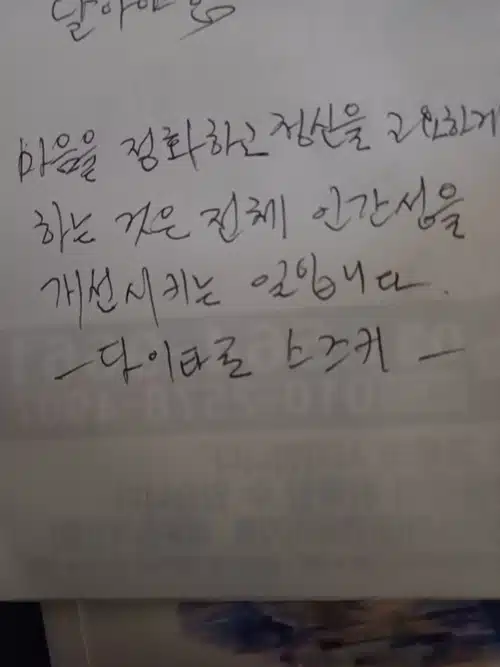 달아야 함
마음을 정화하고 정신을 고요하게
하는 것은 전체 인간성을
개선시키는 일입니다.
- 다이타로 스즈키 -